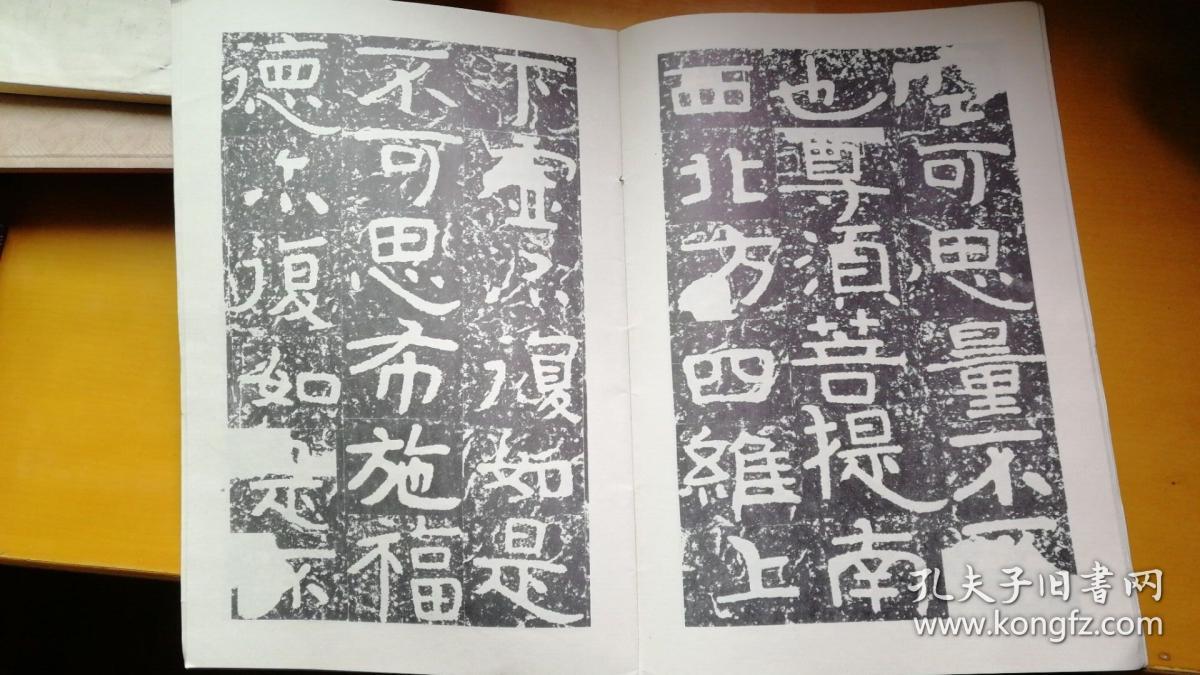 空可思量不不
也尊須菩提南
西北方四維上
下虛亦復如是
不可思布施福
德亦復如是不
孔夫子旧書网
www.kongfz.com